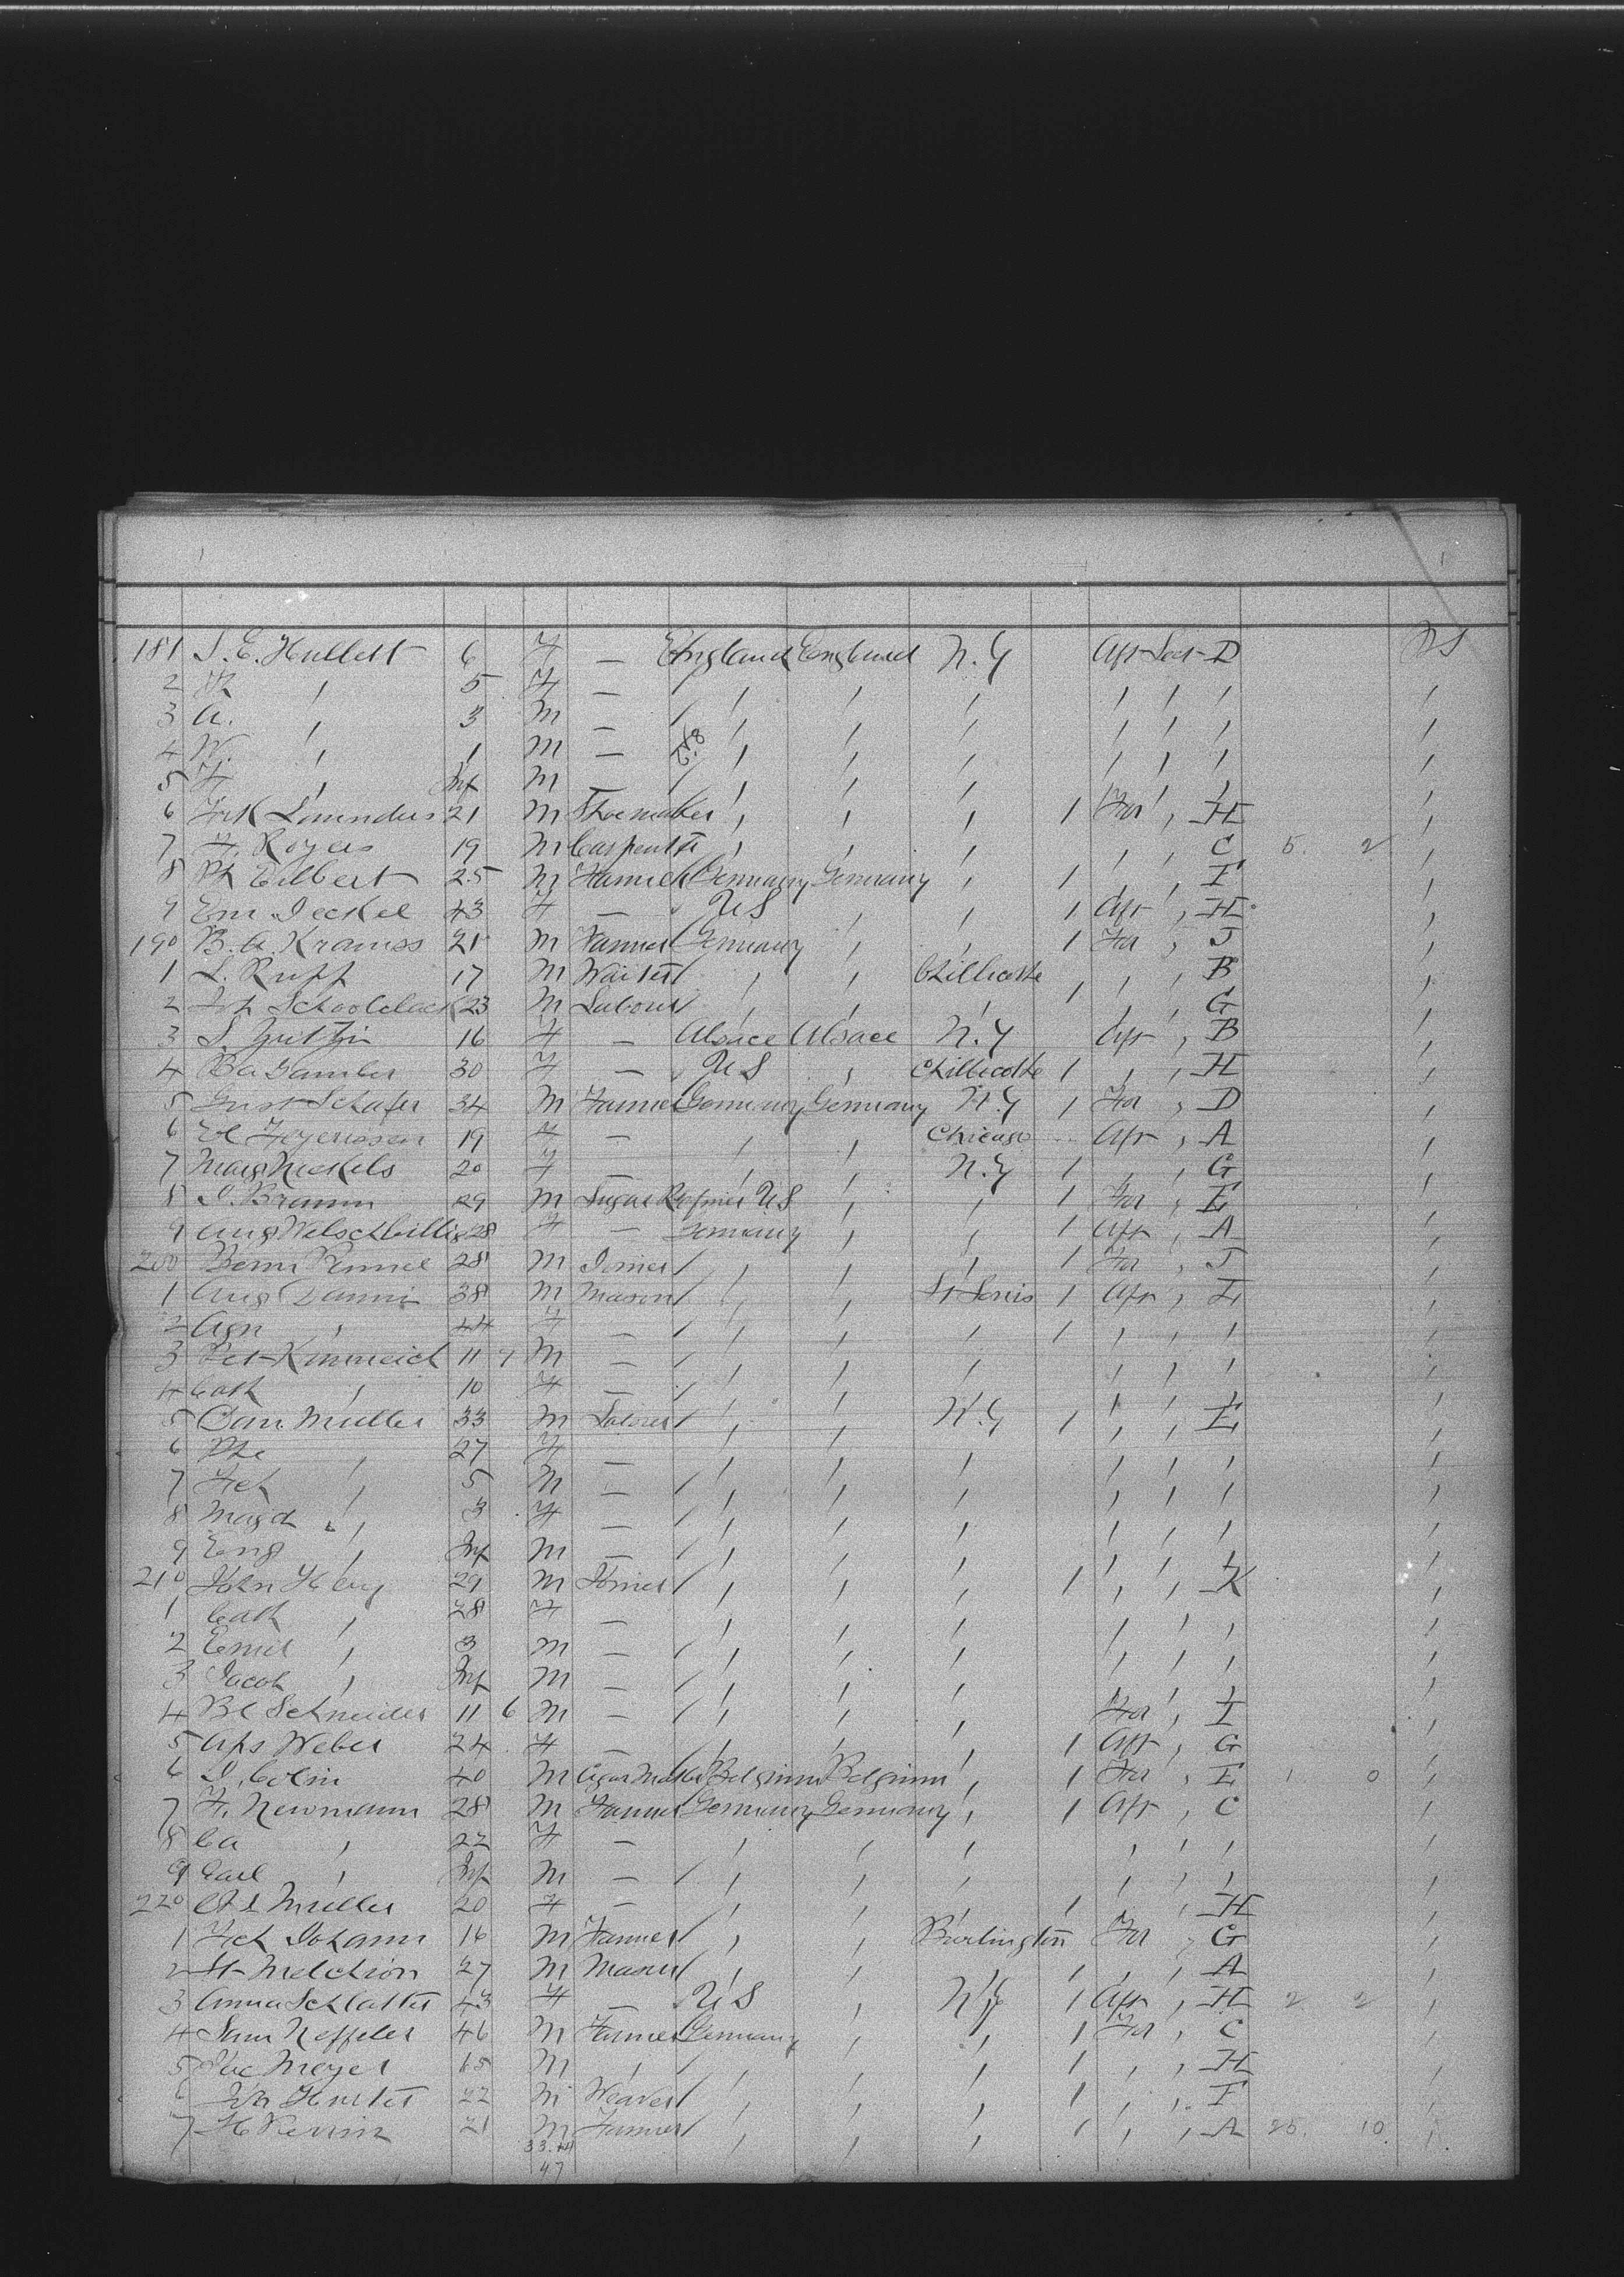 181 S. E. Hullett 6 F — England England N.Y Aft Sect D PS
2 " 5 F — " " " " " " "
3 A. " 3 M — " " " " " " "
4 W. " 1 M — " " " " " " "
5 F " Inf M — " " " " " " "
6 Frk Saunders 21 M Shoemaker " " " 1 For " H "
7 F. Royers 19 M Carpentr " " " " " C 5. 2 "
8 Ph Eilbert 25 M Farmer Germany Germany " 1 " " F "
9 Em Jeckel 43 F — US " " 1 Aft " H "
190 B. A. Kramss 21 M Farmer Germany " " 1 For " J "
1 L. Rupp 17 M Waiter " " Chillicothe " " B "
2 Joh 23 M Labour " " " 1 " " G "
3 S. 16 F — Alsace Alsace N.Y Aft " B "
4 Ba Gambler 30 F — US " Chillicothe 1 " " H "
5 Gust Schafer 34 M Farmer Germany Germany N.Y 1 For " D "
6 19 F — " " Chicago Aft " A "
7 Marg Nickels 20 F — " " N.Y 1 " " G "
8 J. Bramm 29 M Sugar Refiner US " " 1 For " E "
9 Aug Welschbillig 28 F — Germany " " 1 Aft " A "
200 28 M Joiner " " " 1 For " J "
1 Aug Damm 38 M Mason " " St Louis 1 Aft " E "
2 Agn " 44 F — " " " 1 " " " "
3 Pet Kimmeich 11 7 M — " " " " " " "
4 Cath " 10 F — " " " " " " "
5 Dan. Muller 33 M Laborer " " N.Y 1 " " E "
6 Phe " 27 F — " " " " " " "
7 Fch " 5 M — " " " " " " "
8 Magd " 3 F — " " " " " " "
9 Eng " Inf M — " " " " " " "
210 John 29 M Joiner " " " 1 " " K "
1 Cath " 28 F — " " " " " " "
2 Emil " 3 M — " " " " " " "
3 Jacob " Inf M — " " " " " " "
4 Bl Schneider 11 6 M — " " " For " I "
5 Aps Weber 24 F — " " " 1 Aft " G "
6 J. Colin 40 M Cigar Maker Belgium Belgium " 1 For " E 1 0 "
7 F. Newmann 28 M Farmer Germany Germany " 1 Aft " C "
8 Ca " 22 F — " " " " " " "
9 Carl " Inf M — " " " " " " "
220 Muller 20 F — " " " 1 " " H "
1 Fch Johann 16 M Farmer " " Burlington For " G "
2 St Melchion 27 M Mason " " " 1 " " A "
3 Anna Schlatter 43 F — US " N.Y 1 Aft " H 2 2 "
4 Sam Neffeler 46 M Farmer Germany " " 1 For " C "
5 Jac Meyer 65 M " " " " 1 " " H "
6 22 M Weaver " " " 1 " " F "
7 H 21 M Farmer " " " 1 " " A 25. 10. "
33.14
47